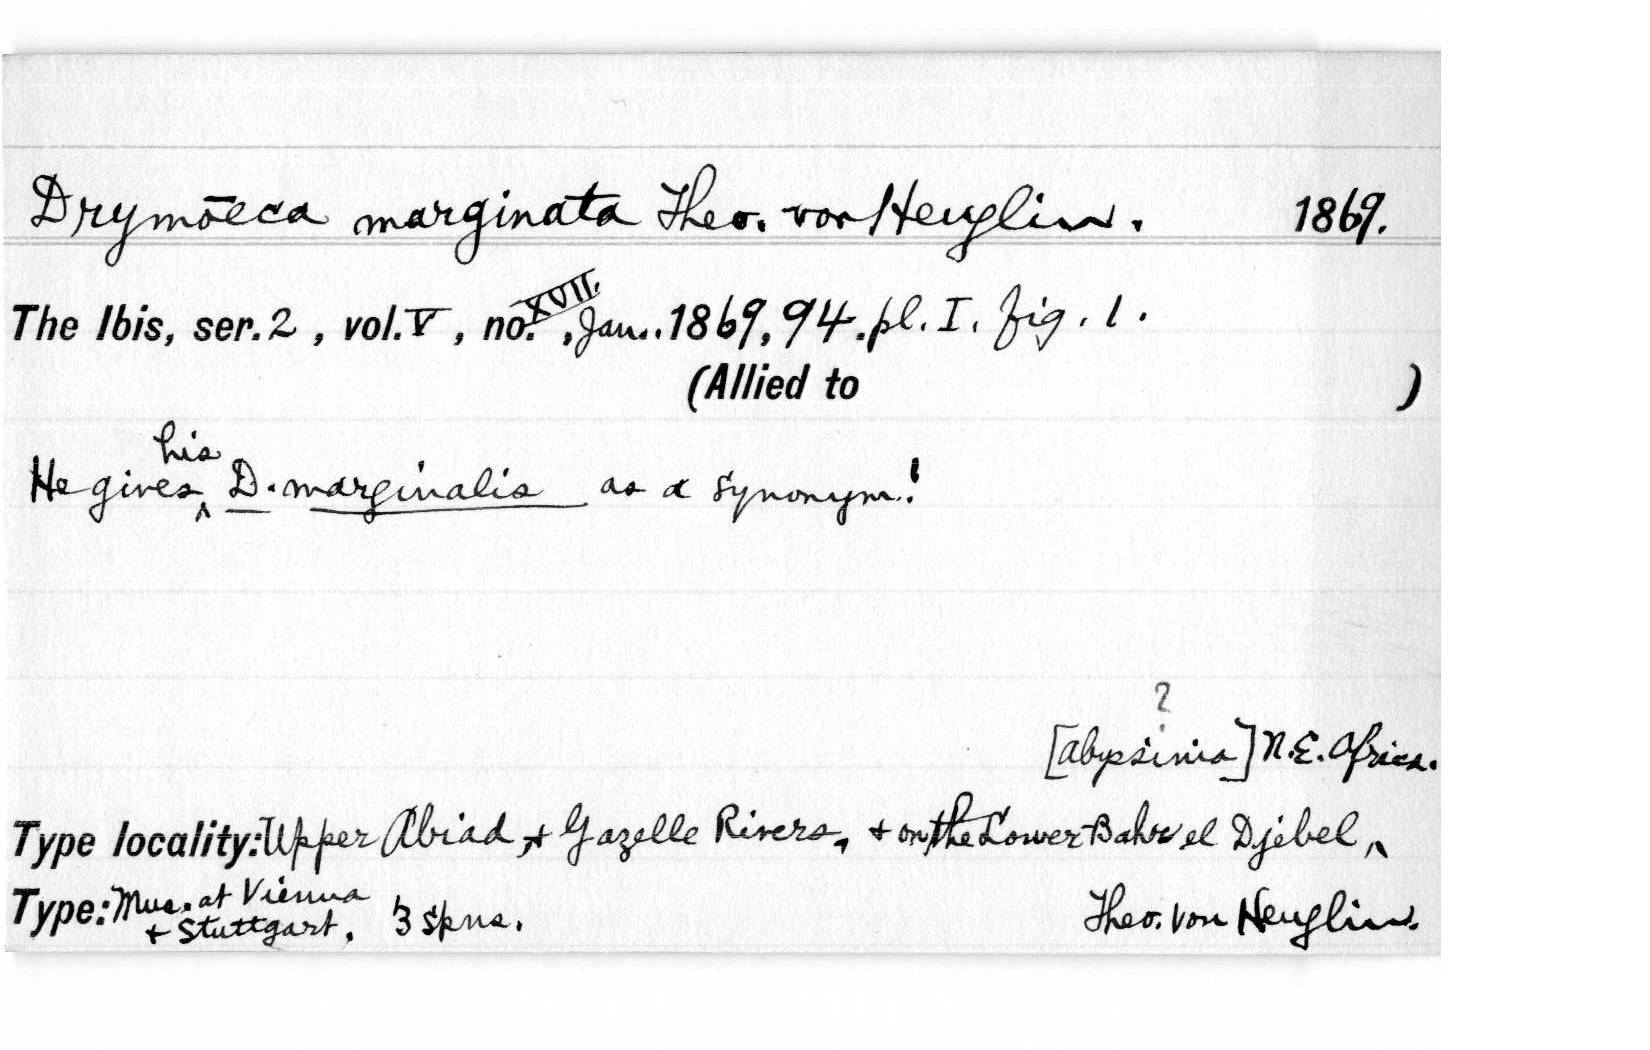 Drymōeca marginata Theo. von Heuglin. 1869.
The Ibis, ser. 2, vol. V, no. XVII., Jan.. 1869, 94. pl. I. fig. 1.
(Allied to )
He gives his D. marginalis as a synonym!
?
[Abyssinia] N.E. Africa.
Type locality: Upper Abiad, + Gazelle Rivers, + on the Lower Bahr el Djebel,
Type: Mus. at Vienna + Stuttgart, 3 spns. Theo. von Heuglin.